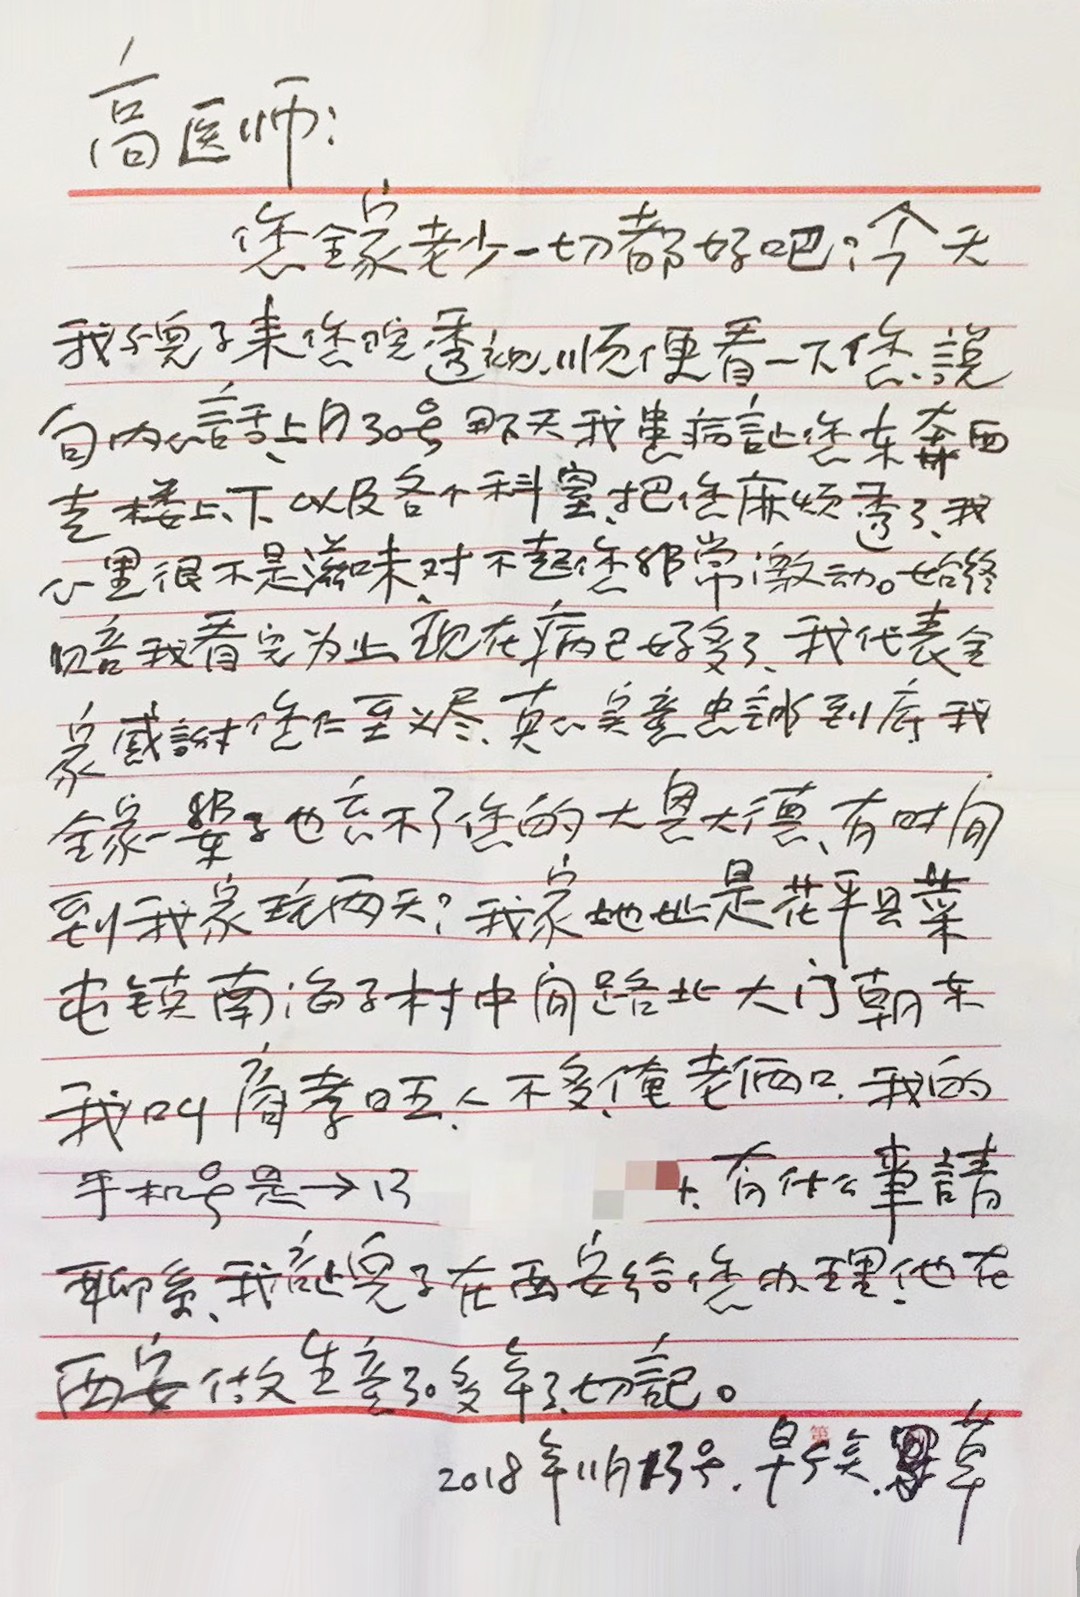 高医师:
您全家老少一切都好吧?今天
我与兒子来您院透视、顺便看一下您、説
句内心話、上月30号那天我患病訨您东奔西
走楼上、下以及各个科室、把您麻烦透了、我
心里很不是滋味、对不起您非常激动。始终
陪我看完为止、現在病已好多了、我代表全
家感謝您仁至义尽、真心实意忠誠到底、我
全家一輩子也忘不了您的大恩大德、有时间
到我家玩两天?我家地址是茌平县菜
屯镇南海子村中间路北大门朝东
我叫 孝旺、人不多、俺老俩口、我的
手机号是→13
有什么事請
聊系、我訨兒子在西安给您办理、他在
西安做生意了。多年了、切記。
2018年11月13号. 早 草